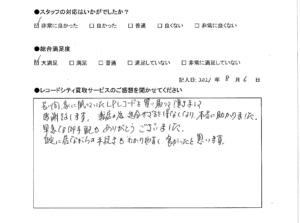 ●スタッフの対応はいかがでしたか？
☑非常に良かった □良かった □普通 □良くない □非常に良くない
●総合満足度
☑大満足 □満足 □普通 □満足していない □非常に満足していない
記入日: 2021 年 8 月 6 日
●レコードシティ買取サービスのご感想を聞かせてください
LPレコードを買い取って頂きまして
感謝致します。 本当に助かりました。
早急な御手配もありがとうございました。
家に居ながらの手続きもわかりやすく、良かったと思います。